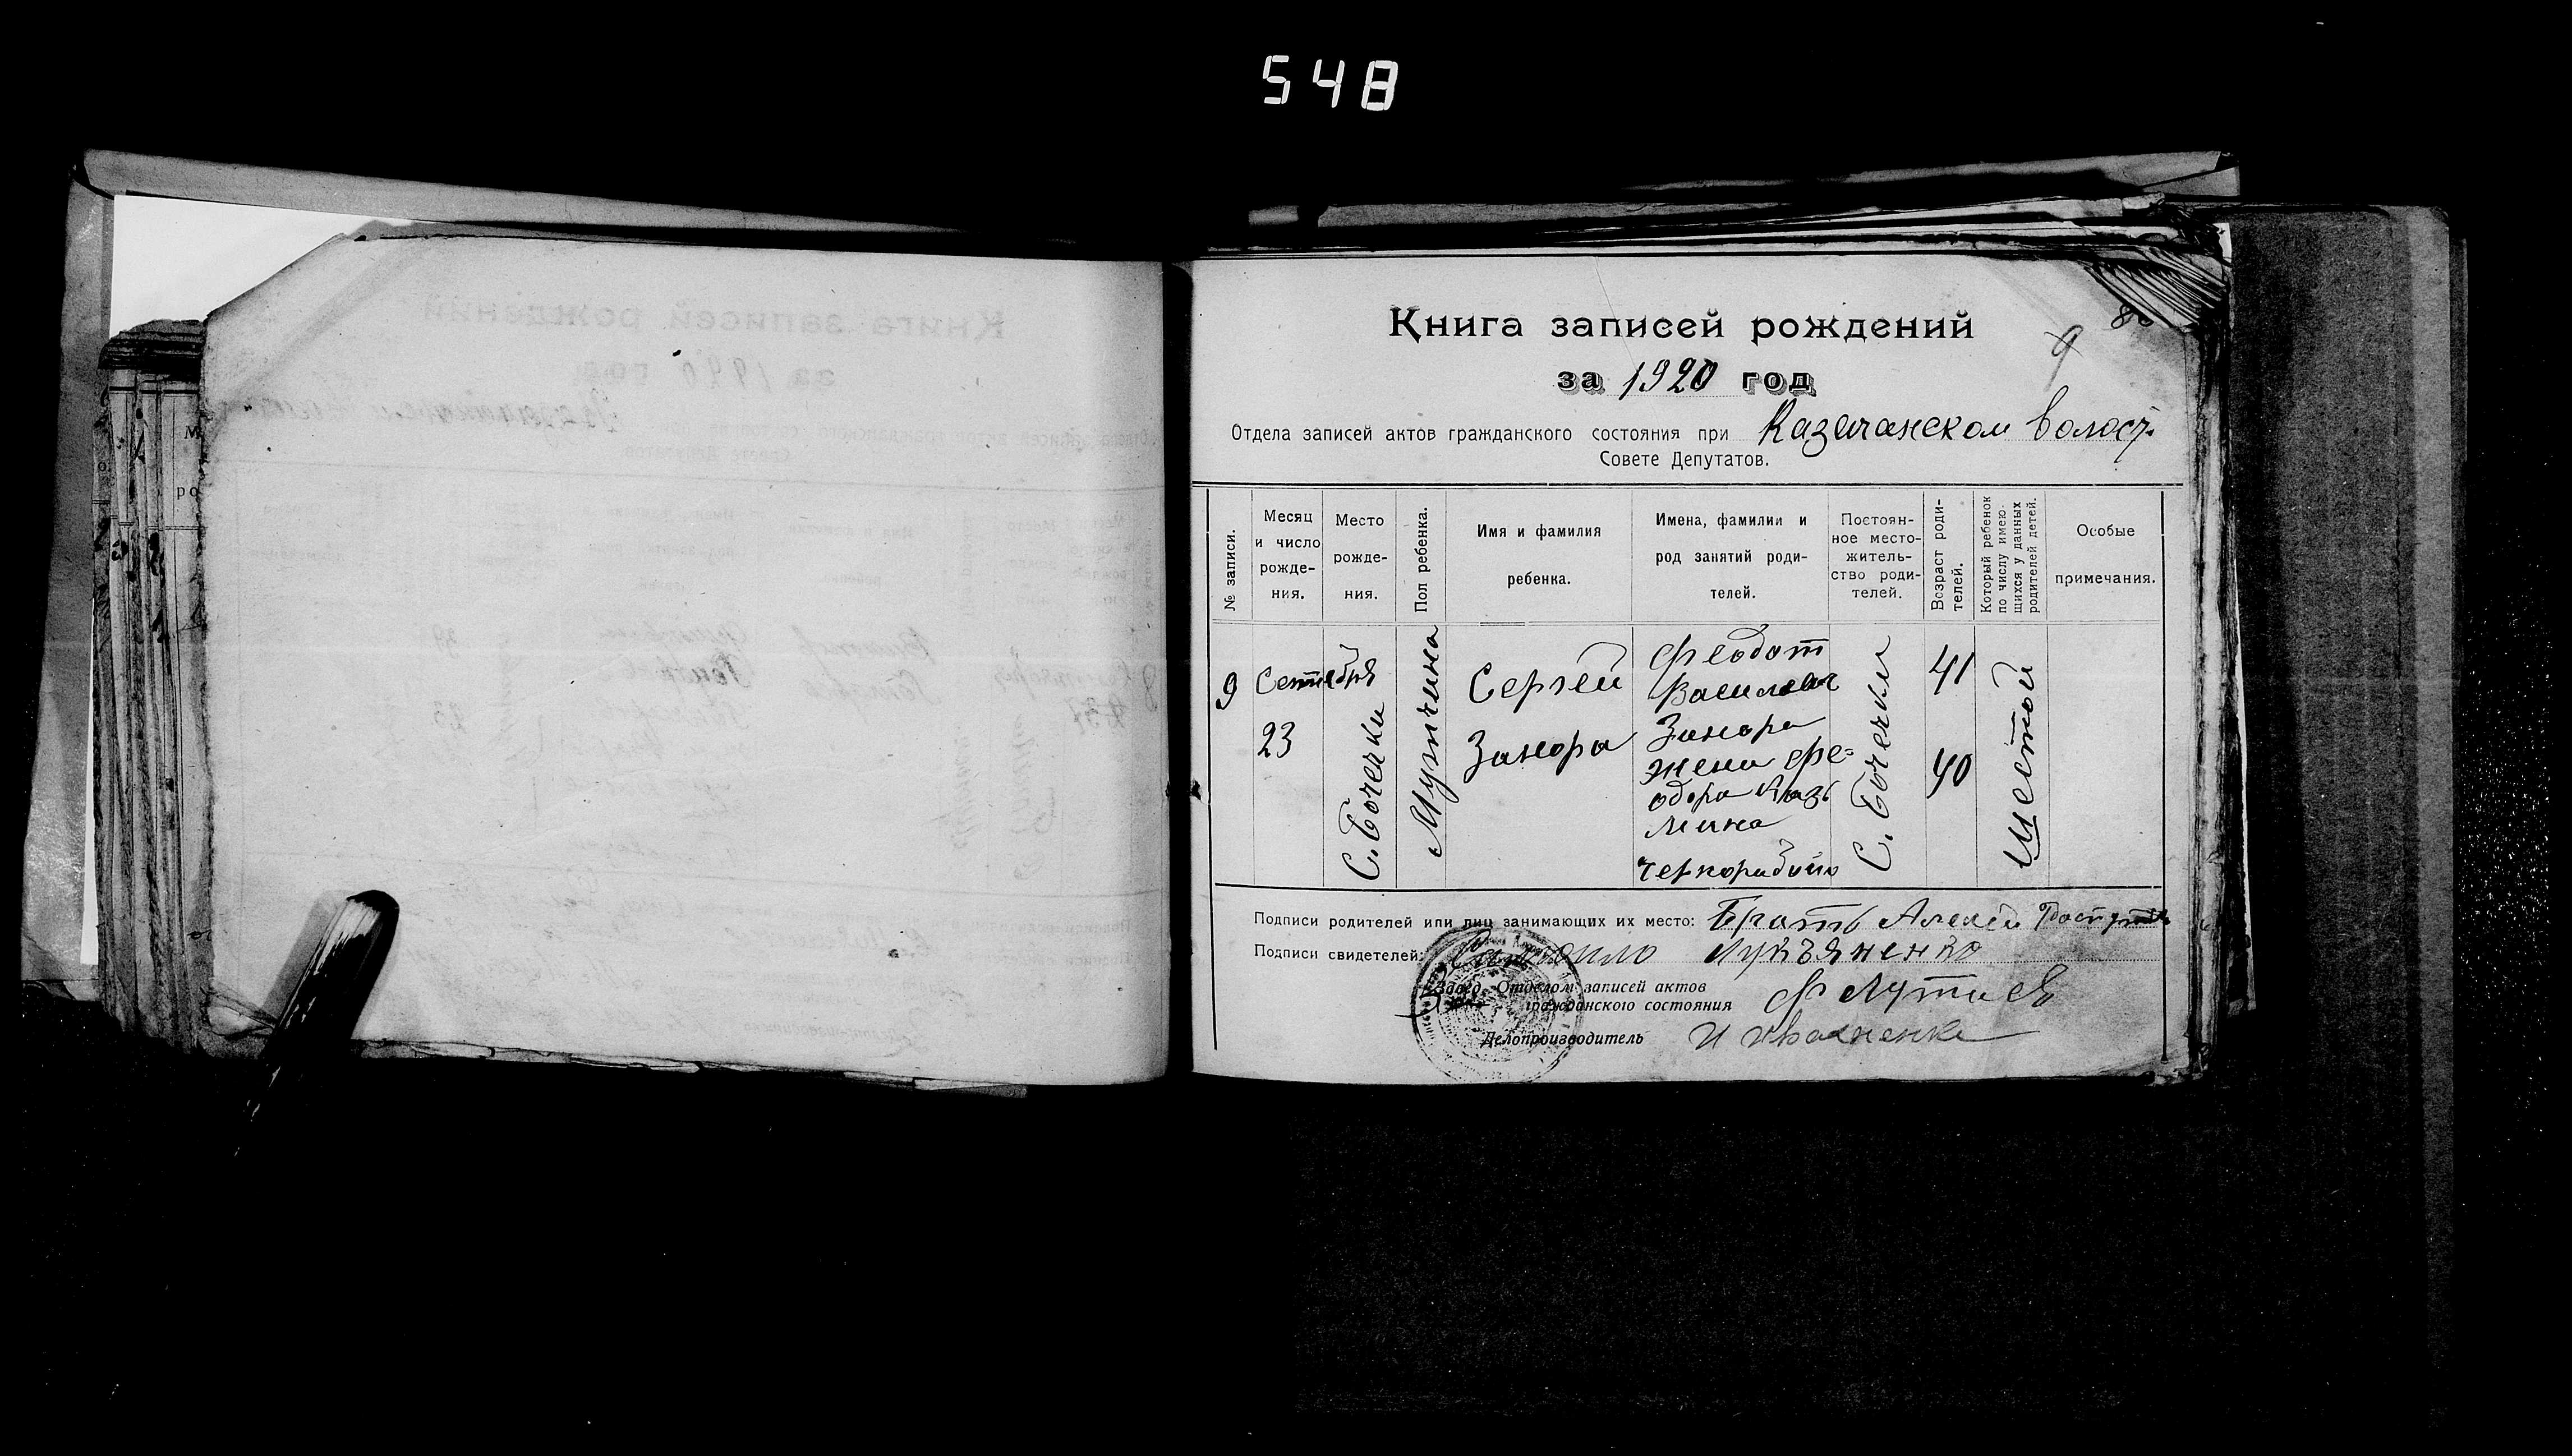 548
Книга записей рождений
9
за 1920 год
Отдела записей актов гражданского состояния при Казачанском волост.
Совете Депутатов.
№ записи.
Месяц и число рожде- ния.
Место рожде- ния.
Пол ребенка.
Имя и фамилия ребенка.
Имена, фамилии и род занятий роди- телей.
Постоян- ное место- житель- ство роди- телей.
Возраст роди- телей.
Который ребенок по числу имею- щихся у данных родителей детей.
Особые примечания.
9
Сентября
23
С. Бочечки
Мущина
Сергей
Занора
Феодот
Васильев
Занора
жена Фе=
одора Казь
мина
чернорабочий
С. Бочечки
41
40
Шестой
Подписи родителей или лиц занимающих их место: Братъ Алексей
Подписи свидетелей: Лукъяненко
Завед. Отделом записей актов
гражданского состояния
Делопроизводитель